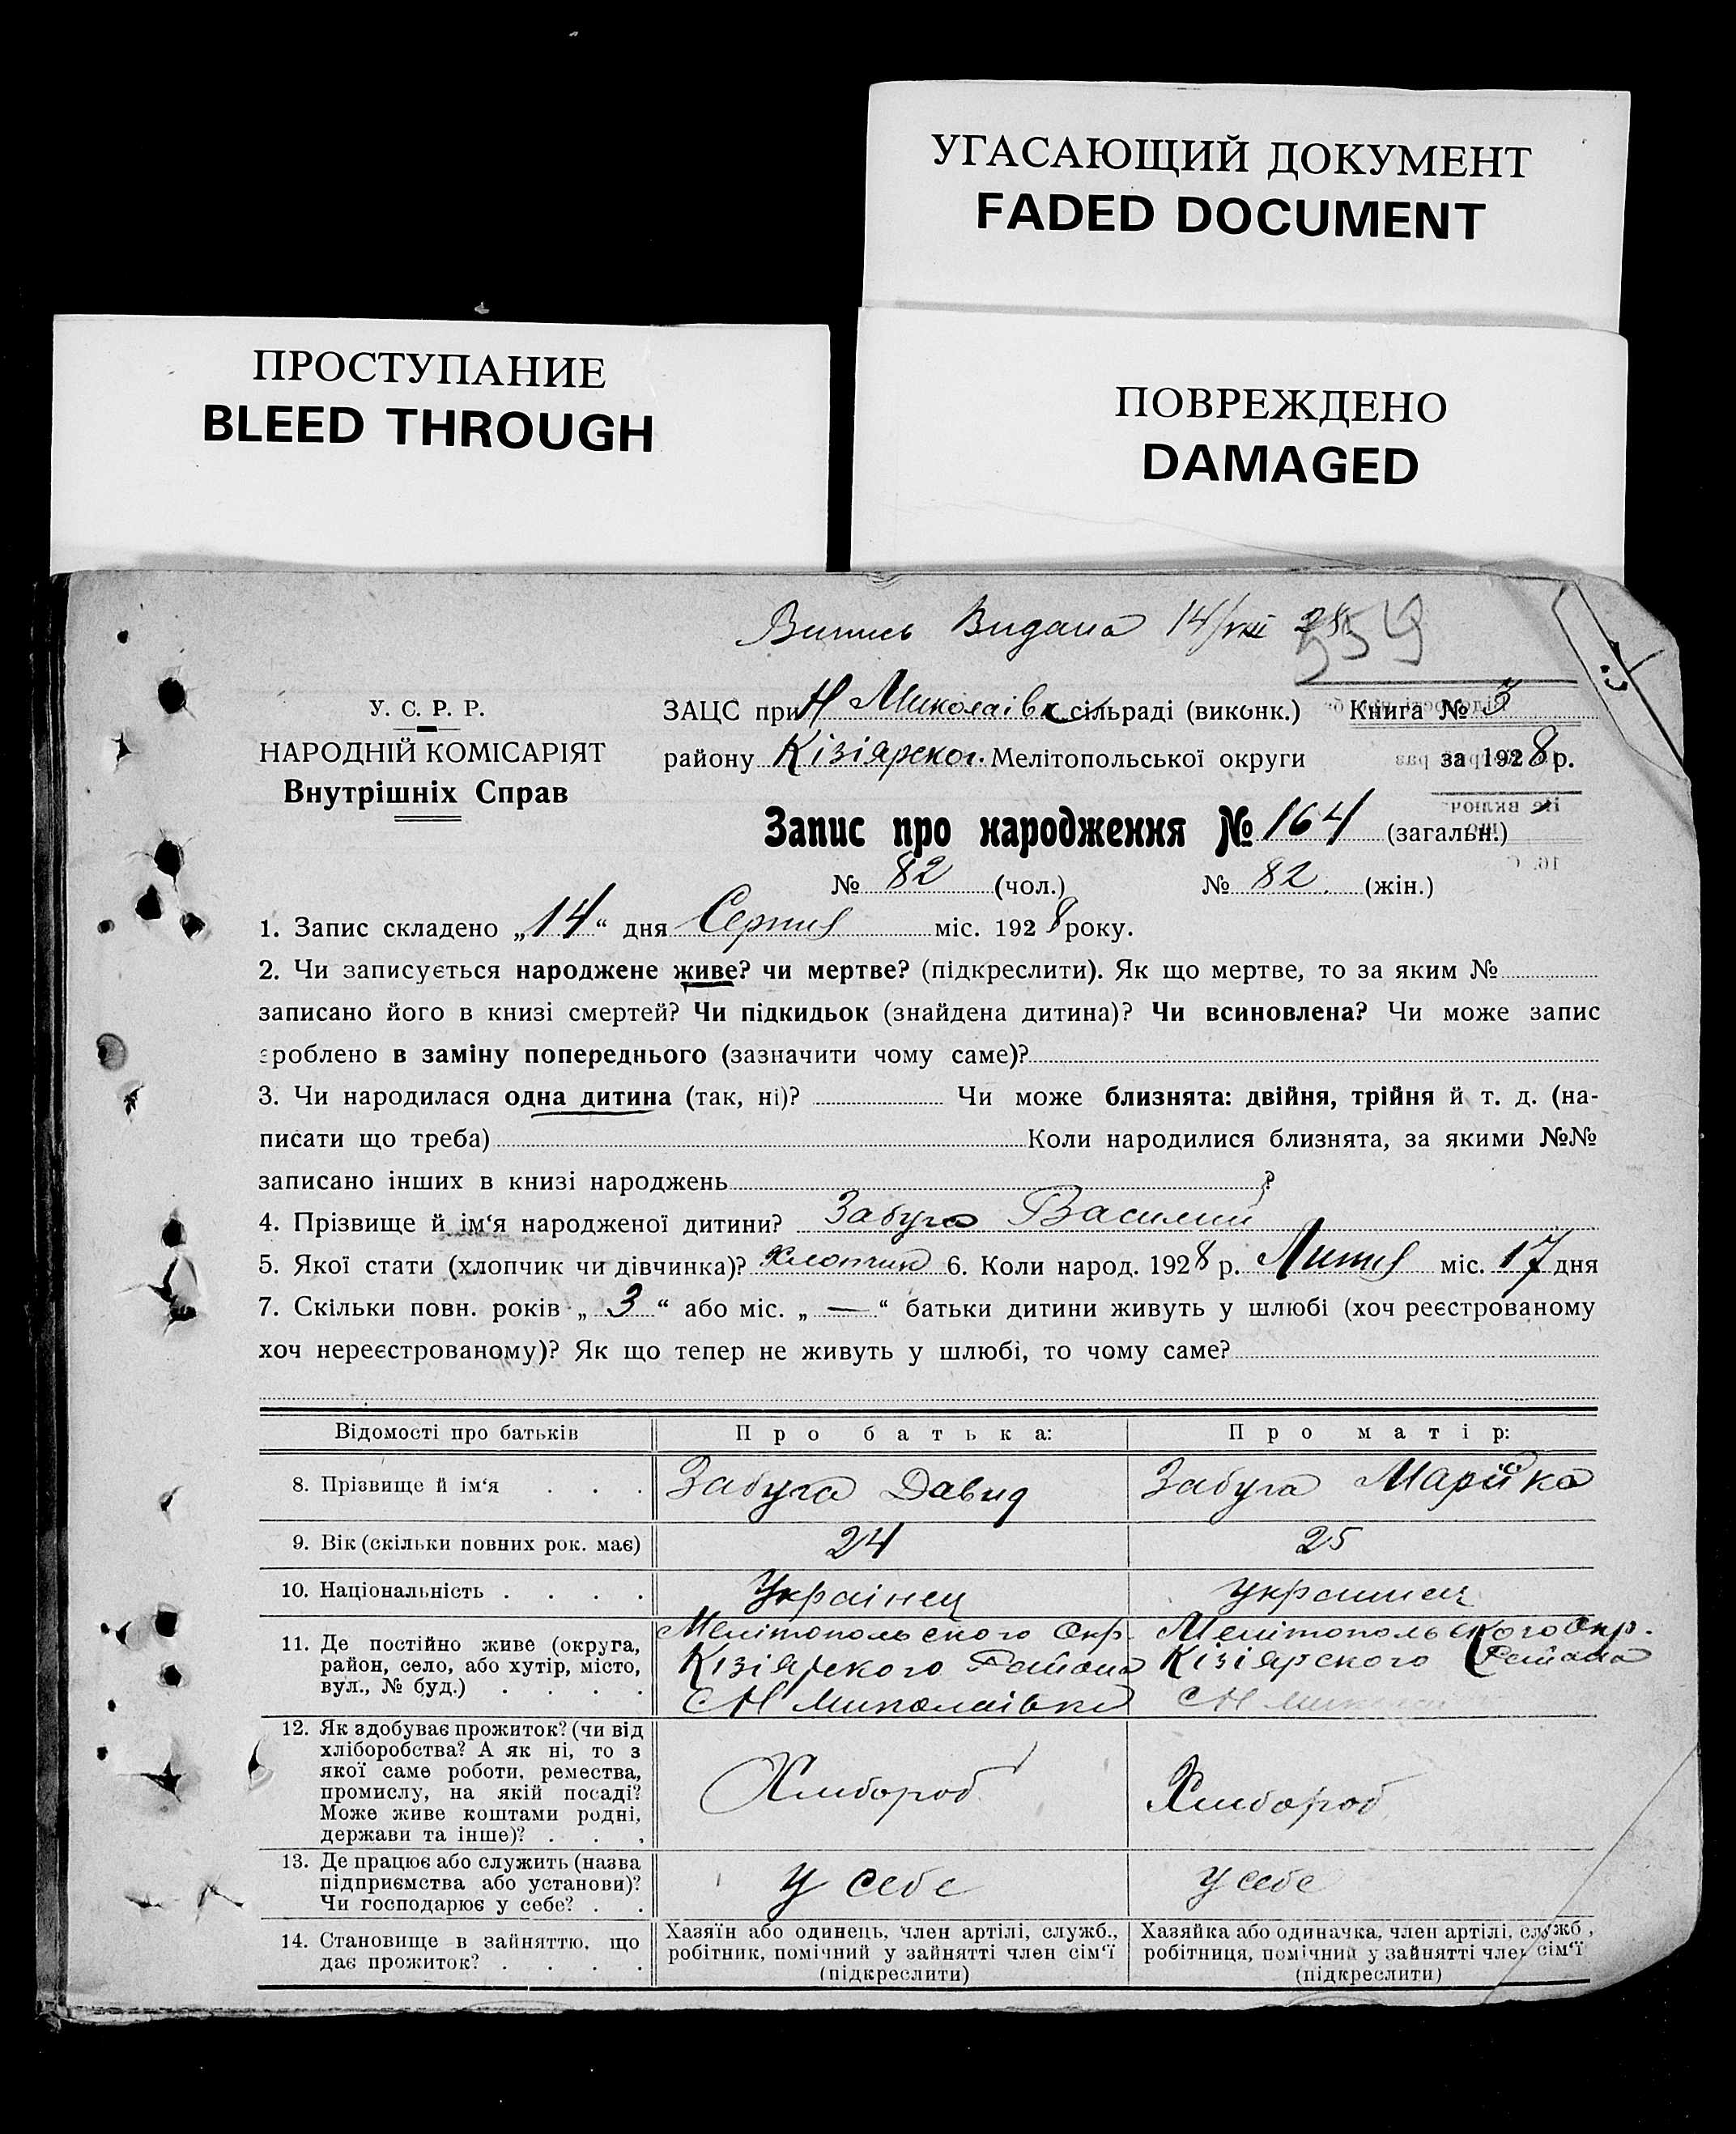 УГАСАЮЩИЙ ДОКУМЕНТ
FADED DOCUMENT
ПРОСТУПАНИЕ
BLEED THROUGH
ПОВРЕЖДЕНО
DAMAGED
Випись Видана 14/VIII 28
559
У. С. Р. Р.
НАРОДНІЙ КОМІСАРІЯТ
Внутрішніх Справ
ЗАЦС при Н Миколаівк сільраді (виконк.) Книга № 3
району Кізіярског. Мелітопольської округи за 1928 р.
Запис про народження № 164 (загальн.)
№ 82 (чол.) № 82. (жін.)
1. Запис складено „14“ дня Серпня міс. 1928 року.
2. Чи записується народжене живе? чи мертве? (підкреслити). Як що мертве, то за яким №
записано його в книзі смертей? Чи підкидьок (знайдена дитина)? Чи всиновлена? Чи може запис
зроблено в заміну попереднього (зазначити чому саме)?
3. Чи народилася одна дитина (так, ні)? Чи може близнята: двійня, трійня й т. д. (на-
писати що треба) Коли народилися близнята, за якими №№
записано інших в книзі народжень ?
4. Прізвище й ім‘я народженої дитини? Забуга Василий
5. Якої стати (хлопчик чи дівчинка)? Хлопчик 6. Коли народ. 1928 р. Липня міс. 17 дня
7. Скільки повн. років „ 3 “ або міс. „ — “ батьки дитини живуть у шлюбі (хоч реєстрованому
хоч нереєстрованому)? Як що тепер не живуть у шлюбі, то чому саме?
Відомості про батьків Про батька: Про матір:
8. Прізвище й ім‘я . . . Забуга Давид Забуга Марійка
9. Вік (скільки повних рок. має) 24 25
10. Національність . . . . Украінец украинец
11. Де постійно живе (округа,
район, село, або хутір, місто,
вул., № буд.) . . . .
Мелітопольского Окр.
Кізіярского Района
С Н Миколаівка
Мелітопольского Окр.
Кізіярского Района
С Н
12. Як здобуває прожиток? (чи від
хліборобства? А як ні, то з
якої саме роботи, ремества,
промислу, на якій посаді?
Може живе коштами родні,
держави та інше)? . . .
Хлибороб
Хлибороб
13. Де працює або служить (назва
підприємства або установи)?
Чи господарює у себе? . .
У себе
У себе
14. Становище в зайняттю, що
дає прожиток? . . . .
Хазяїн або одинець, член артілі, служб.,
робітник, помічний у зайнятті член сім‘ї
(підкреслити)
Хазяйка або одиначка, член артілі, служб.,
робітниця, помічний у зайнятті член сім‘ї
(підкреслити)